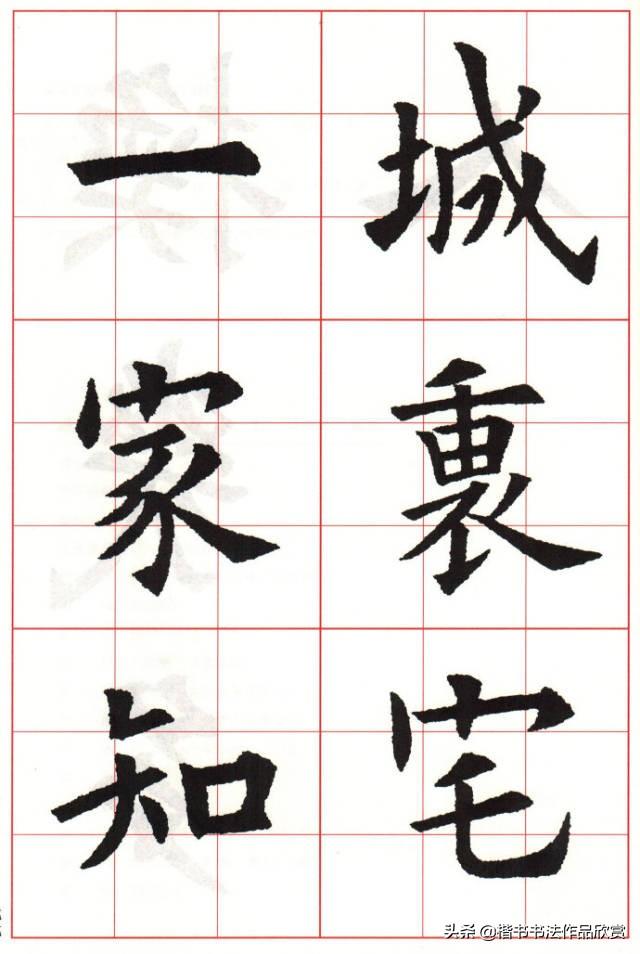 城裏宅
一家知
头条 @楷书书法作品欣赏